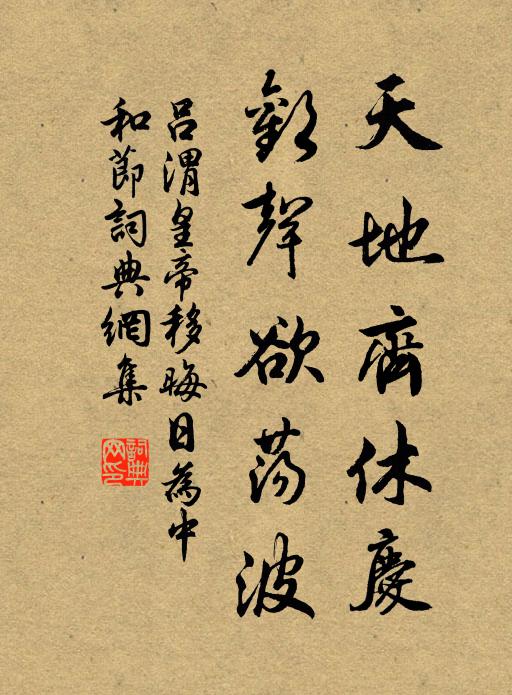 天地齊休慶
歡聲欲蕩波
呂渭皇帝移晦日為中
和節詞典網集
詞典網印